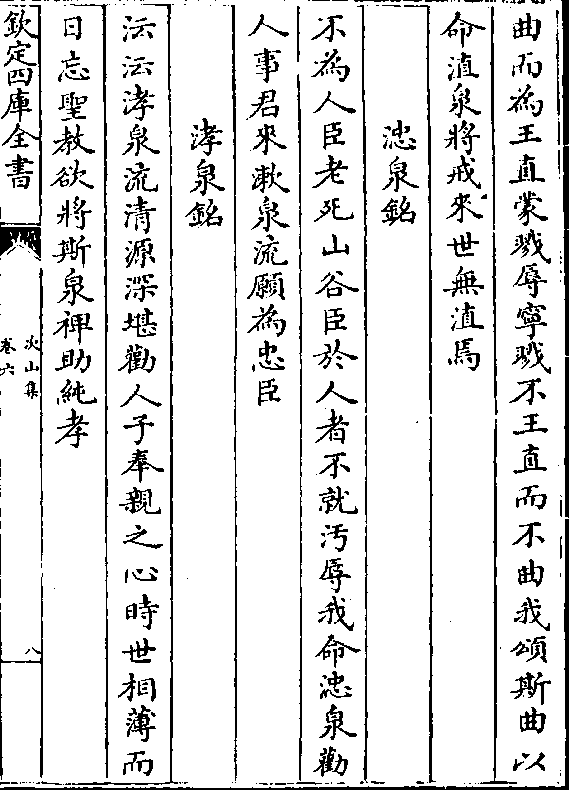 曲而為王直蒙戮辱寧戮不王直而不曲我頌斯曲以
命淔泉將戒來世無淔焉
㳘泉銘
不為人臣老死山谷臣於人者不就汚辱我命㳘泉勸
人事君來漱泉流願為忠臣
涍泉銘
沄沄涍泉流清源深堪勸人子奉親之心時世相薄而
日忘聖教欲將斯泉裨助純孝
欽定四庫全書
次山集
卷六
八